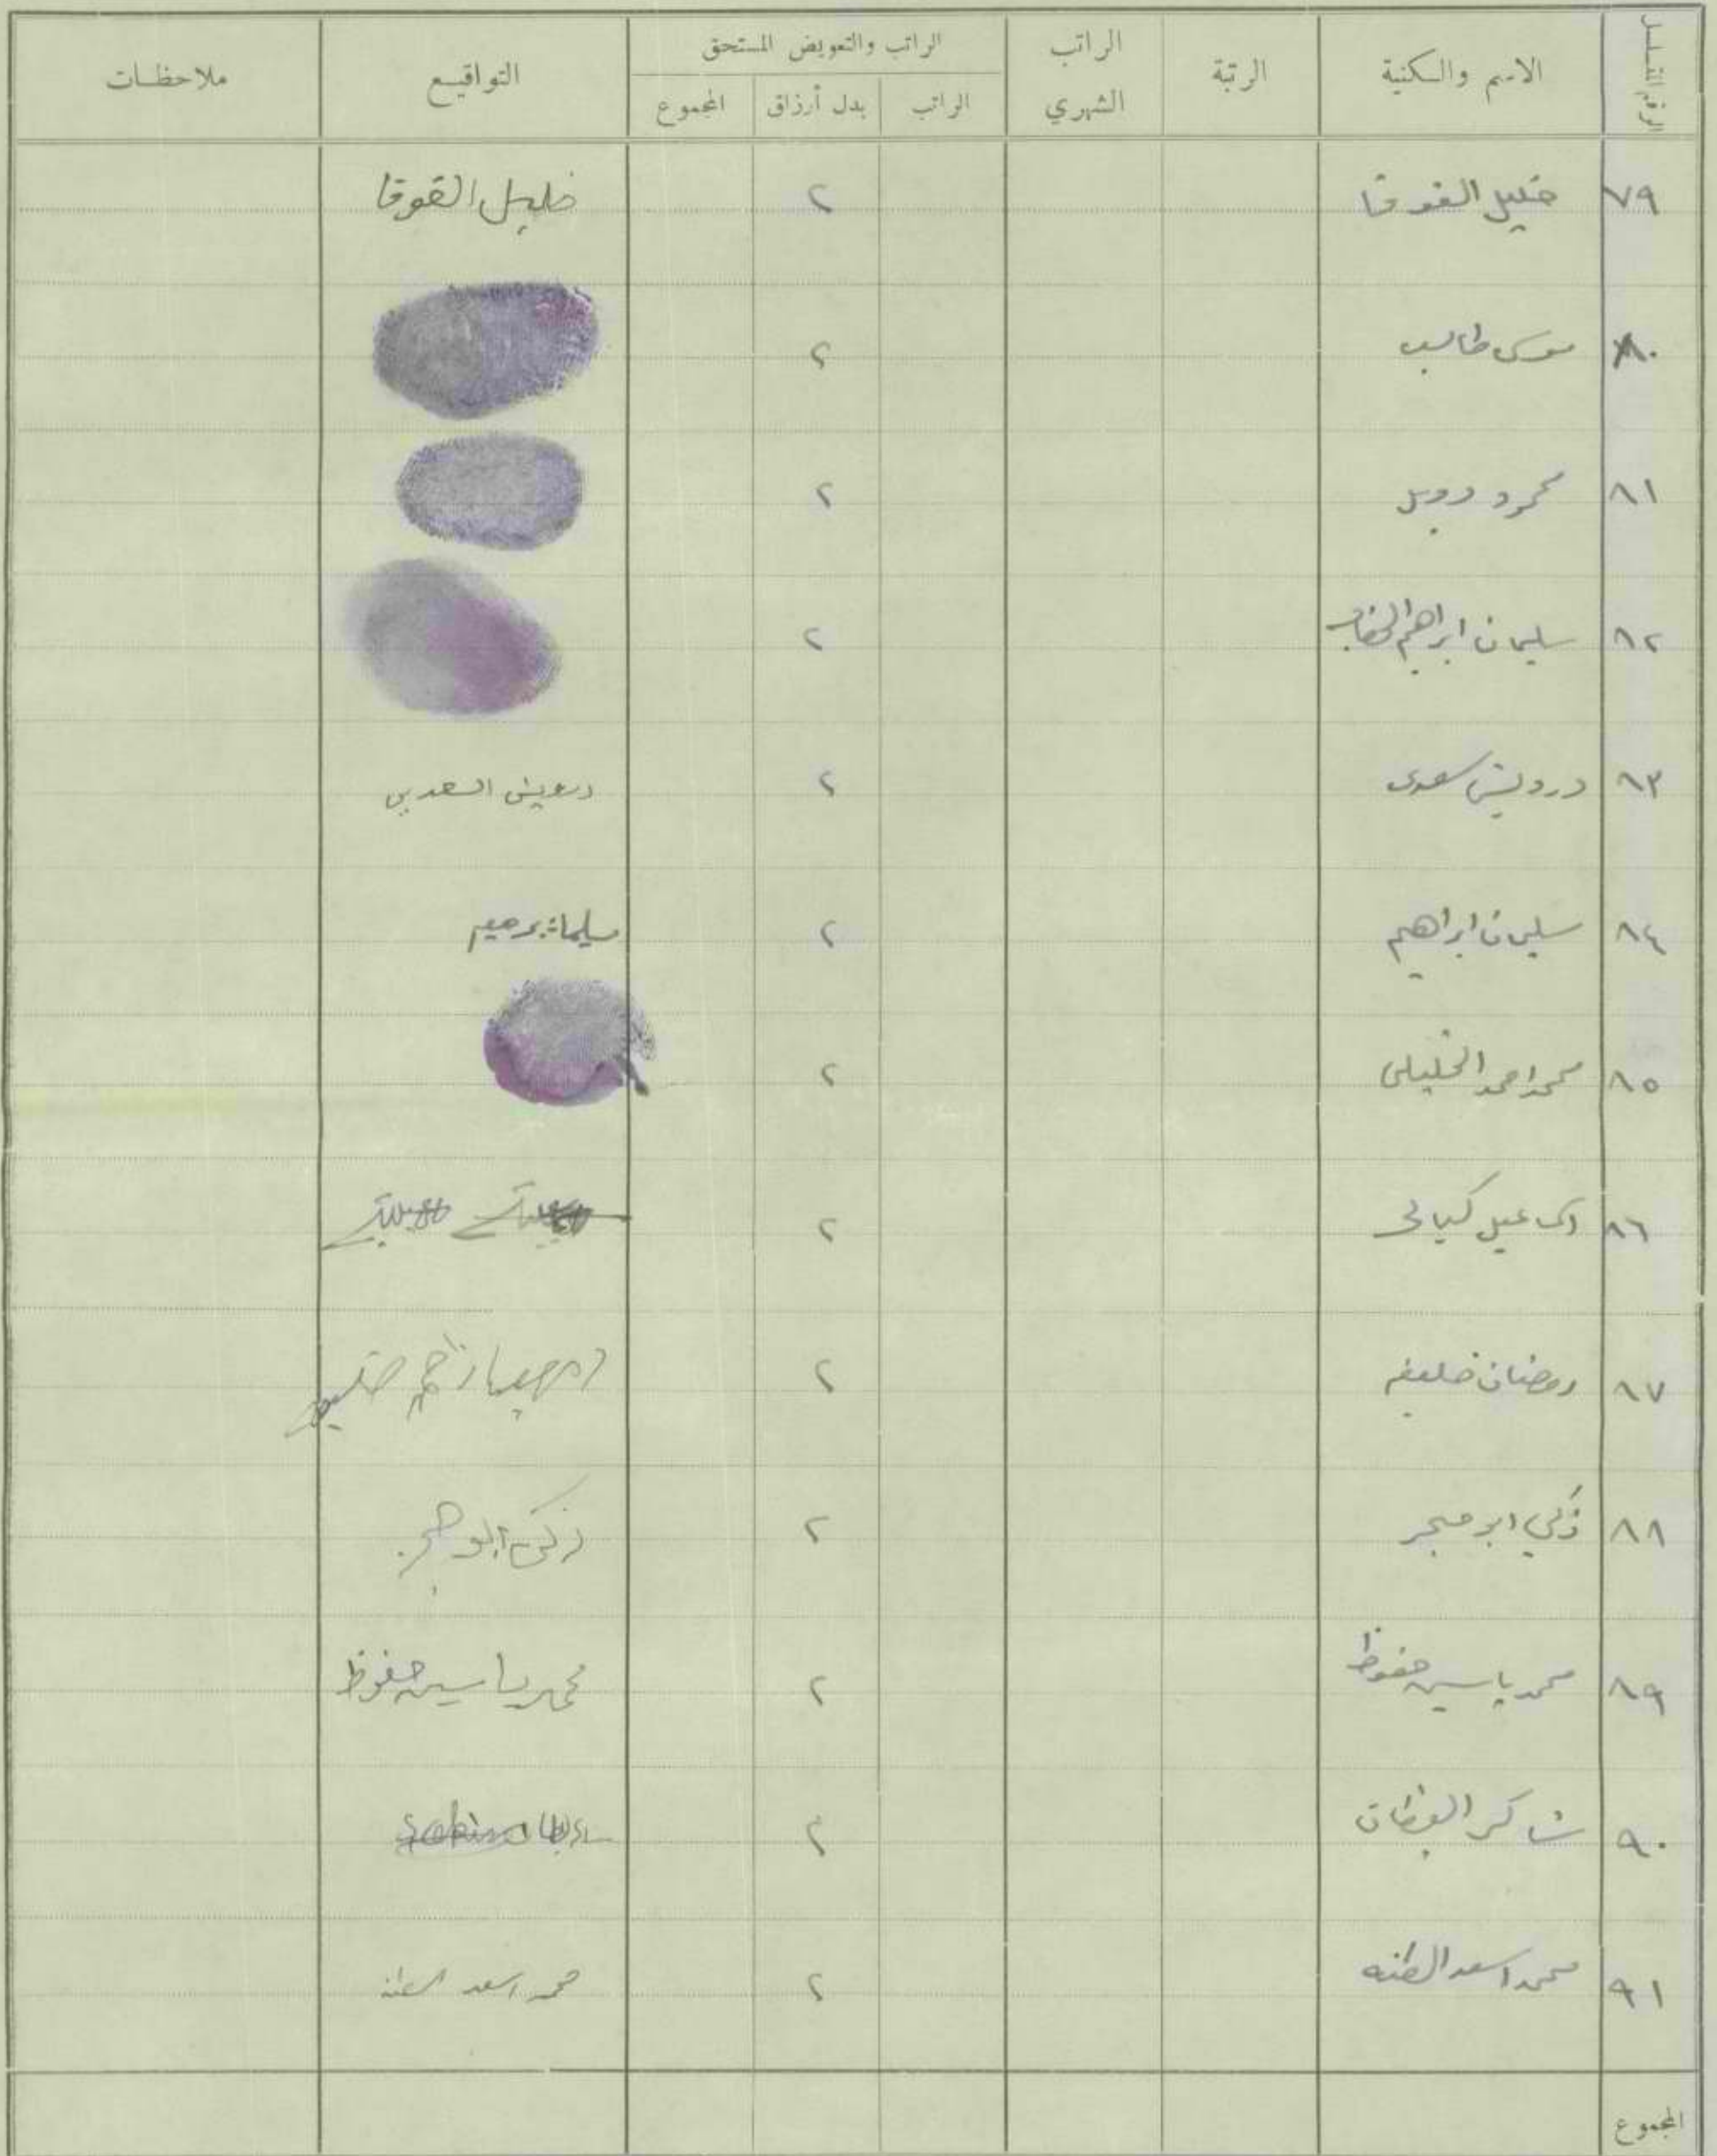 الرقم المتسلسل | الاسم والكنية | الرتبة | الراتب الشهري | الراتب والتعويض المستحق | التواقيع | ملاحظات
الراتب | بدل أرزاق | المجموع
٧٩ | خليل القوقا | ٢ | خليل القوقا
٨٠ | موسى طالب | ٢
٨١ | محمود | ٢
٨٢ | سليمان ابراهيم | ٢
٨٣ | درويش سعدى | ٢ | درويش السعدي
٨٤ | سليمان ابراهيم | ٢
٨٥ | محمد احمد الخليلى | ٢
٨٦ | اسماعيل كيالى | ٢
٨٧ | رمضان خليفه | ٢
٨٨ | زكي ابو حجر | ٢ | زكي ابو حجر
٨٩ | محمد ياسين حفوظ | ٢ | محمد ياسين حفوظ
٩٠ | شاكر | ٢
٩١ | محمد اسعد | ٢ | محمد اسعد
المجموع